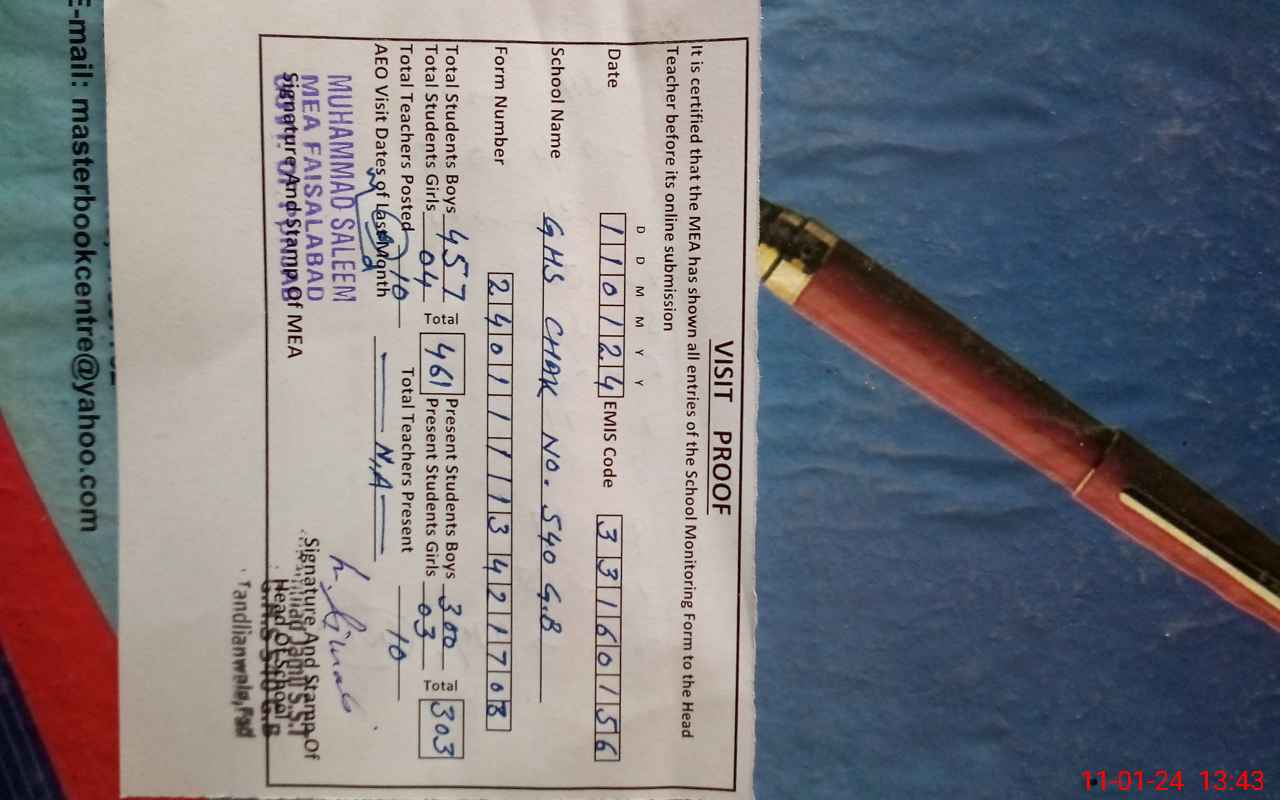 VISIT PROOF
It is certified that the MEA has shown all entries of the School Monitoring Form to the Head
Teacher before its online submission
D D M M Y Y
Date 110124 EMIS Code 33160156
School Name GHS CHAK NO. 540 G.B
Form Number 24011113421708
Total Students Boys 457 Total 461 Present Students Boys 300 Total 303
Total Students Girls 04 Present Students Girls 03
Total Teachers Posted 10 Total Teachers Present 10
AEO Visit Dates of Last Month N.A
MUHAMMAD SALEEM
MEA FAISALABAD
Signature And Stamp Of MEA
Signature And Stamp Of
Head Of School
G.H.S 540 G.B
Tandlianwala, Fsd
E-mail: masterbookcentre@yahoo.com
11-01-24 13:43